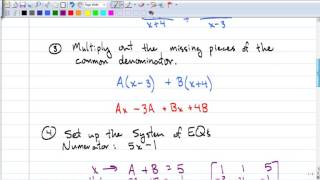 x+4 x-3
③ Multiply out the missing pieces of the
common denominator.
A(x-3) + B(x+4)
Ax - 3A + Bx + 4B
④ Set up the System of EQs
Numerator: 5x-1
x → A + B = 5 [1 1 5]